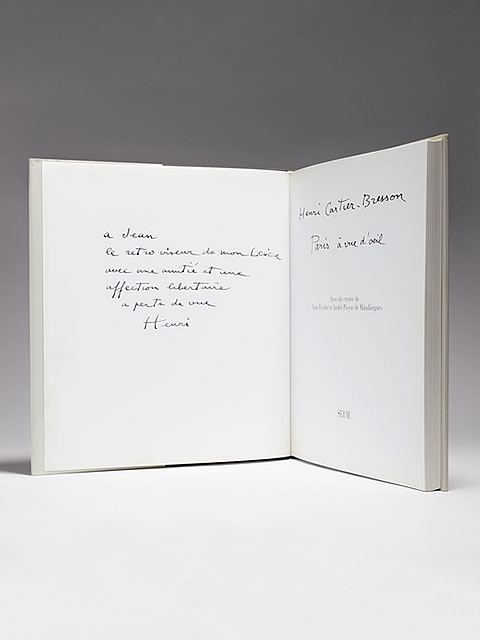 a Jean
le retroviseur de mon Leica
avec une amitié et une
affection libertaire
a perte de vue
Henri
Henri Cartier-Bresson
Paris à vue d'œil
Avec des textes de
Vera Feyder et André Pieyre de Mandiargues
SEUIL